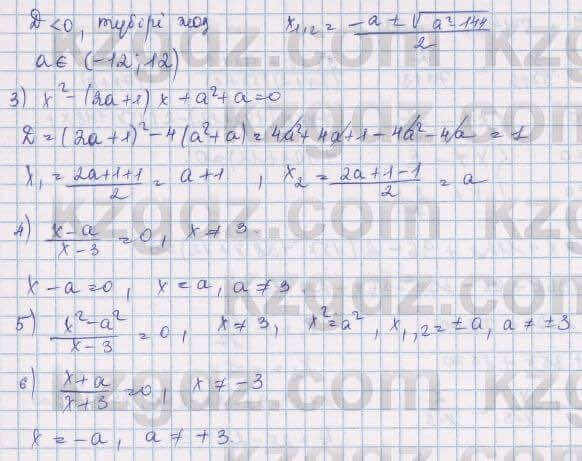 D < 0, түбірі жоқ    x₁,₂ = (-a ± √(a² 144))/2
a ∈ (-12; 12)
3) x² - (2a+1) x + a² + a = 0
D = (2a+1)² - 4(a²+a) = 4a² + 4a + 1 - 4a² - 4a = 1
x₁ = (2a+1+1)/2 = a+1 , x₂ = (2a+1-1)/2 = a
4) (x-a)/(x-3) = 0, x ≠ 3.
x - a = 0, x = a, a ≠ 3.
5) (x²-a²)/(x-3) = 0, x ≠ 3, x² = a², x₁,₂ = ±a, a ≠ ±3
6) (x+a)/(x+3) = 0, x ≠ -3
x = -a, a ≠ +3.
kzgdz.com